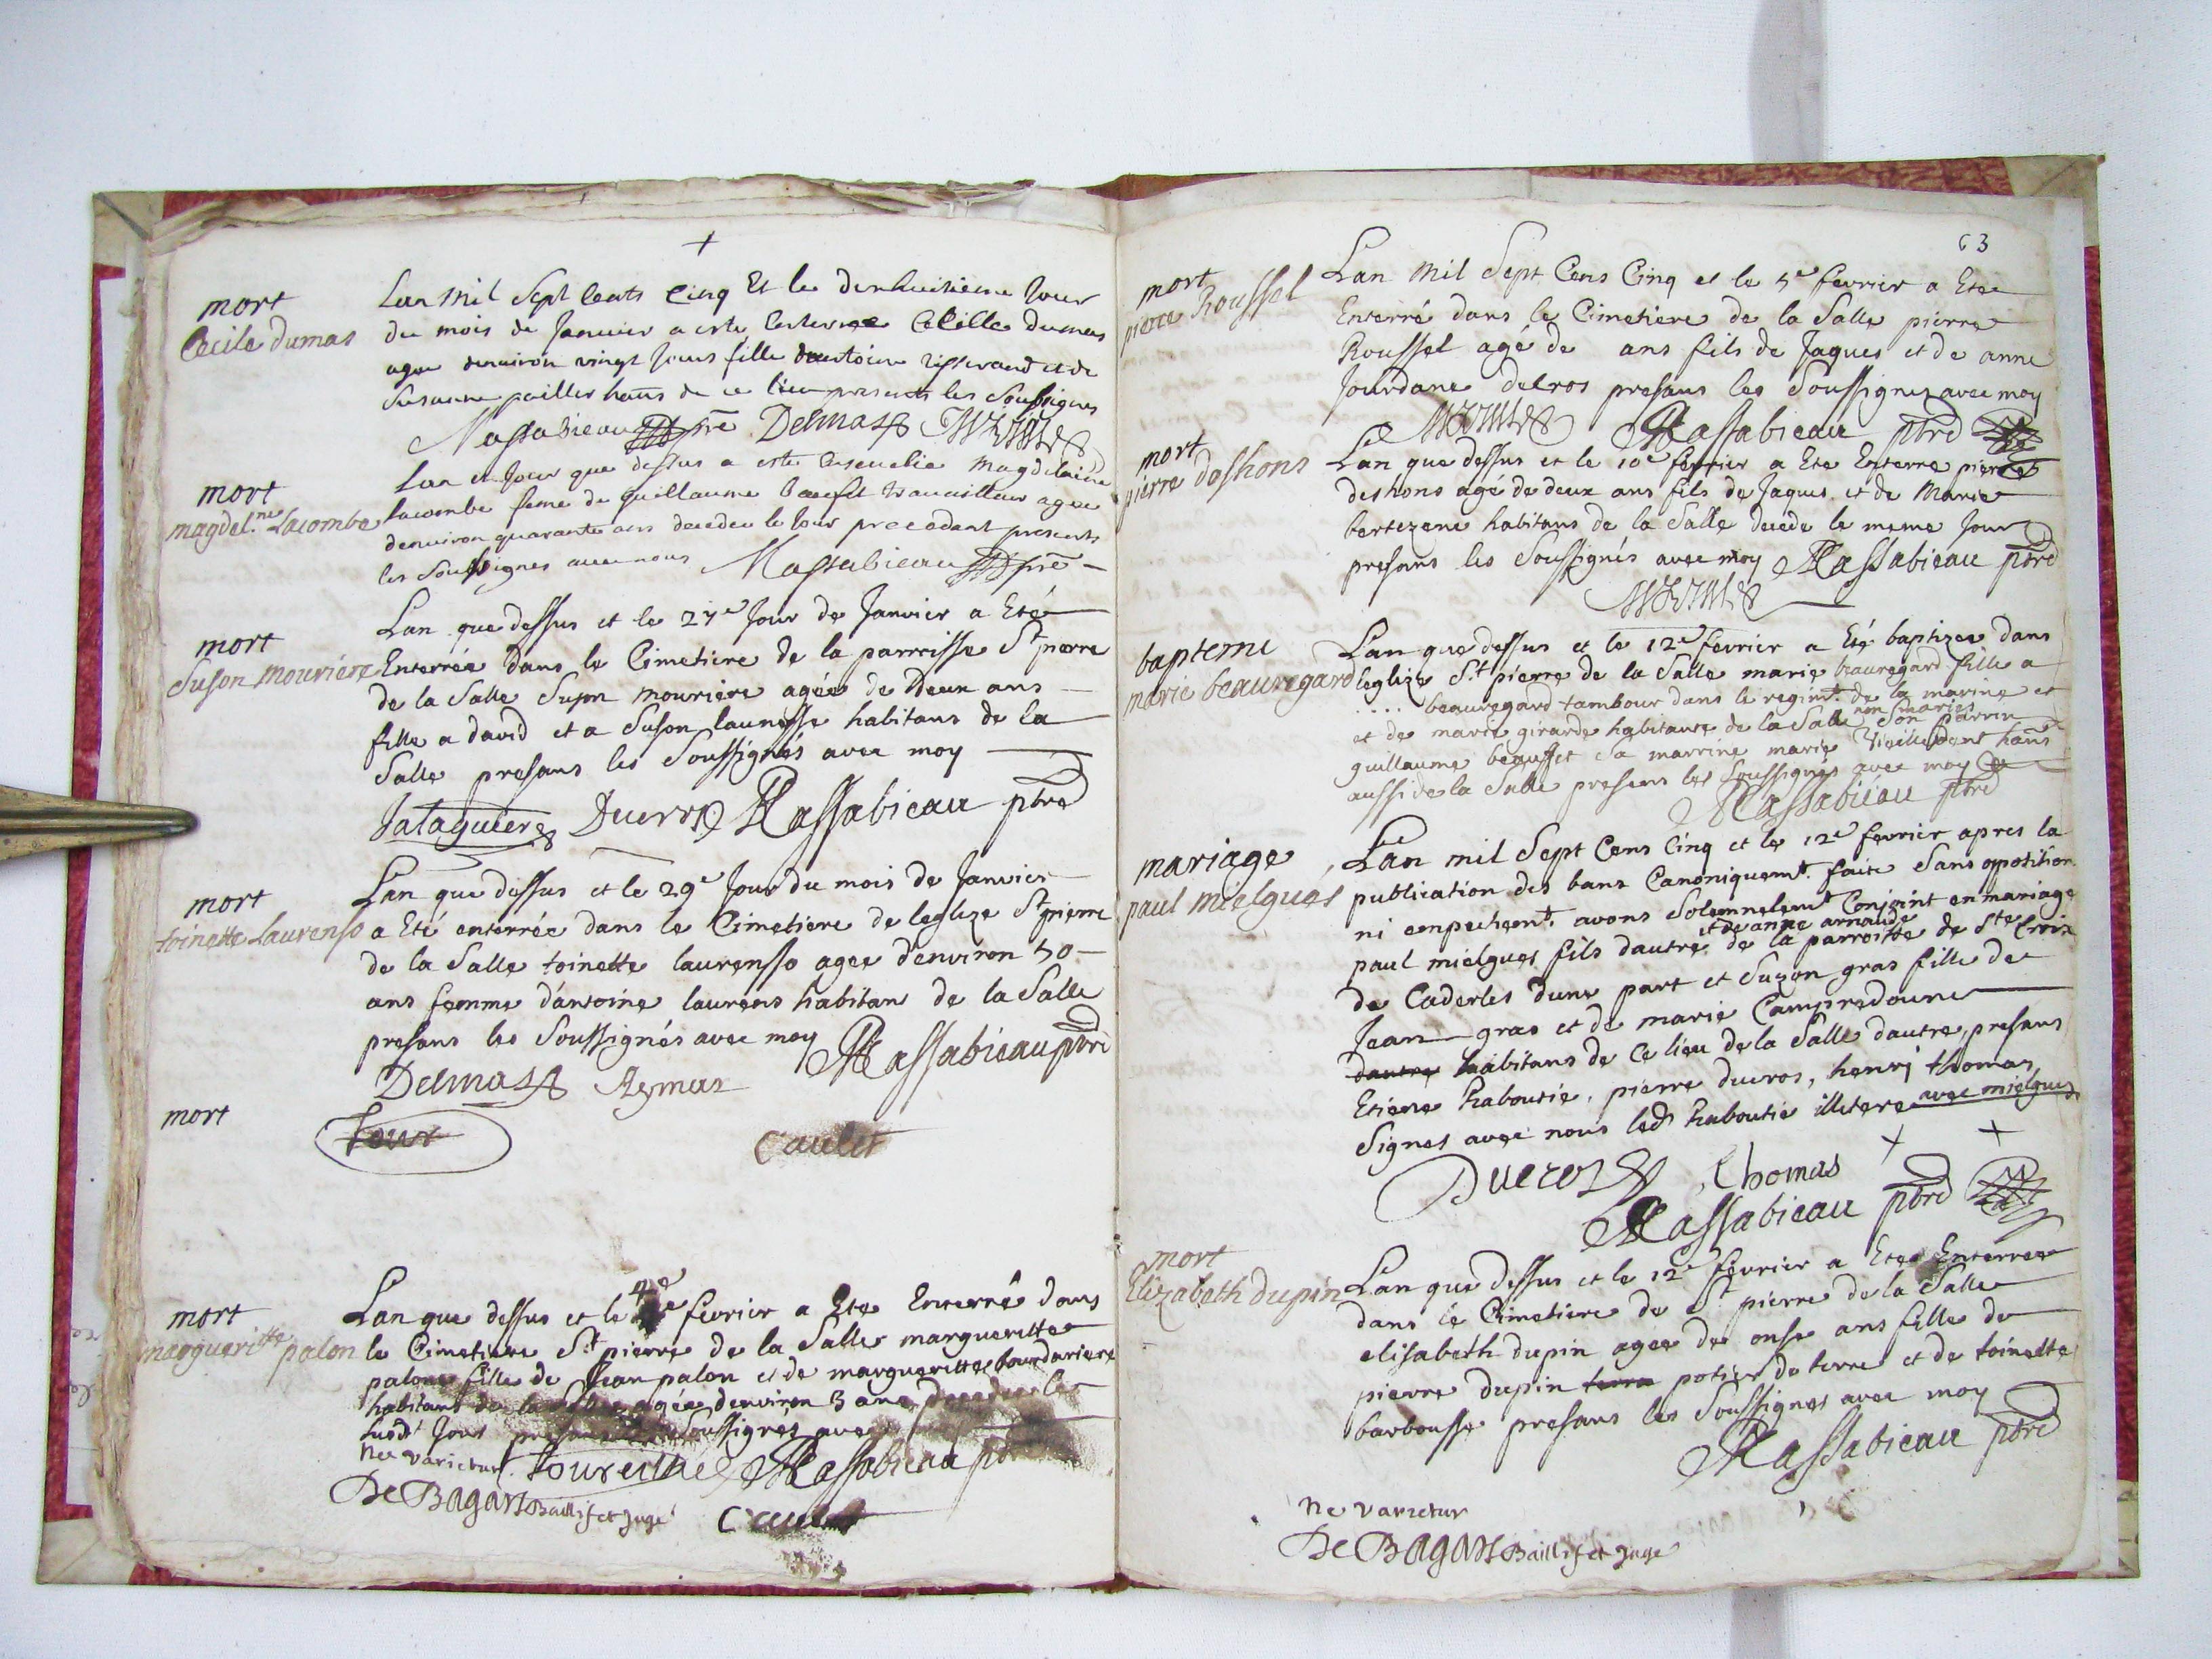 +
mort
Cecile dumas
Lan mil Sept Cents Cinq Et le dixhuitieme Jour
du mois de Janvier a este enterree Cecille dumas
agee denuiron vingt Jours fille dantoine tisserand et de
Susanne pailler hans de ce lieu presents les Soussignes
Massabieau pre Delmas
mort
magdel.ne Lacombe
Lan et Jour que dessus a este ensevelie magdelaine
lacombe feme de guillaume travailleur agee
denuiron quarante ans decedee le Jour precedant presents
les Soussignes avec nous Massabieau pre
mort
Suson mouriere
Lan que dessus et le 27e Jour de Janvier a Eté
Enterrée dans le Cimetiere de la parroisse St pierre
de la Salle Suson mouriere agée de Deux ans
fille a david et a Suson launesse habitans de la
Salle presans les Soussignés avec moy
Jataguier Ducros Massabieau ptre
mort
toinette Laurenso
Lan que dessus et le 29e Jour du mois de Janvier
a Eté enterrée dans le Cimetiere de leglize St pierre
de la Salle toinette laurensso agee d'environ 50
ans femme d'antoine laurens habitans de la Salle
presans les Soussignés avec moy Massabieau ptre
Delmas Aymar
mort
Caulet
mort
margueritte palon
Lan que dessus et le 4e février a Ete Enterrée dans
le Cimetiere St pierre de la Salle margueritte
palone fille de Jean palon et de margueritte bourdariere
habitans de la Salle agée denviron 3 ans decedee le
susd Jour presans les Soussignes avec
Ne varietur Massabieau
De Bagars Baillif et Juge Caulet
63
mort
pierre Roussel
Lan Mil Sept Cens Cinq et le 5e fevrier a Ete
Enterré dans le Cimetiere de la Salle pierre
Roussel agé de ans fils de Jaques et de anne
Jourdane delros presans les Soussignez avec moy
Massabieau ptre
mort
pierre deshons
Lan que dessus et le 10e fevrier a Ete Enterre pierre
deshons agé de deux ans fils de Jaques et de Marie
bertezene habitans de la Salle decede le meme Jour
presans les Soussignés avec moy Massabieau ptre
bapteme
marie beauregard
Lan que dessus et le 12e fevrier a Eté baptizee dans
leglize St pierre de la Salle marie beauregard fille a
.... beauregard tambour dans le regimt. de la marine et
et de marie girarde habitante de la Salle non maries Son parrin
guillaume beausset Sa marrine marie Vieilledent hans
aussi de la Salle presens les Soussignés avec moy
Massabieau ptre
mariage
paul mielgues
Lan mil Sept Cens Cinq et le 12e fevrier apres la
publication des bans Canoniquemt. faite Sans opposition
ni empechemt. avons Solemnelemt Conjoint en mariage
paul mielgues fils dautre et de anne arnaude de la parroisse de Ste Croix
de Caderles dune part et Suzon gras fille de
Jean gras et de marie Campredoune
dautre habitans de Ce lieu de la Salle dautre presans
Etiene Raboutie, pierre ducros, henrj thomas
Signes avec nous led Raboutie illitere avec mielgues
+ +
Ducros Thomas
Massabieau ptre
mort
Elizabeth dupin
Lan que dessus et le 12e février a Ete Enterree
dans le Cimetiere de St pierre de la Salle
elisabeth dupin agee de onse ans fille de
pierre dupin terre potier de terre et de toinette
barbousse presans les Soussignes avec moy
Massabieau ptre
Ne varietur
De Bagars Baillif et Juge